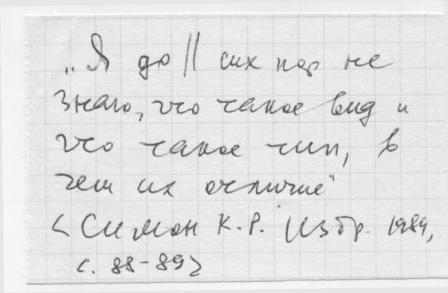 „Я до || сих пор не
знаю, что такое вид и
что такое тип, в
чем их отличие"
<Симон К.Р. Избр. 1984,
с. 88-89>